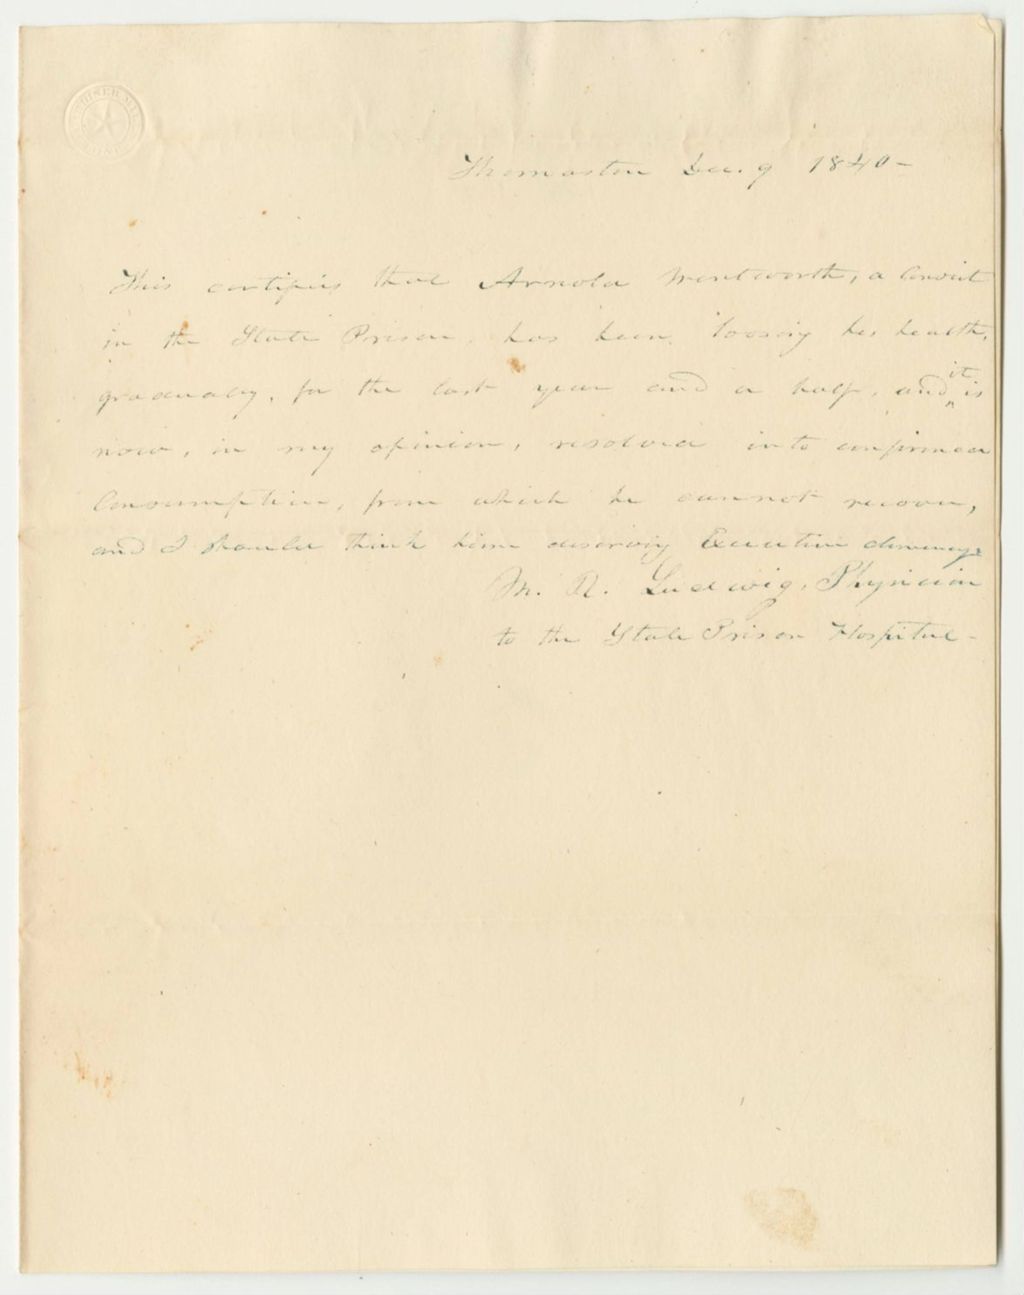 Thomaston Dec. 9 1840-
This certifies that Arnold Wentworth, a Convict
in the State Prison, has been loosing his health,
gradually, for the last year and a half, and it is
now, in my opinion, resolved into confirmed
Consumption, from which he cannot recover,
and I should think him deserving Executive clemency.
M. R. Ludwig, Physician
to the State Prison Hospital-